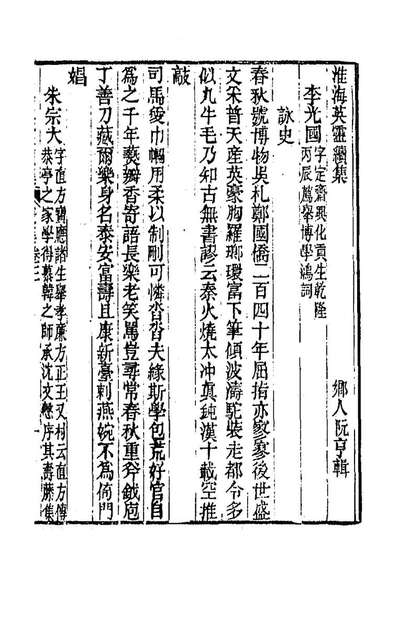 淮海英靈續集
鄉人阮亨輯
李光國字定齋興化貢生乾隆丙辰薦舉博學鴻詞
詠史
春秋號博物吳札鄭國僑二百四十年屈指亦寥寥後世盛
文采普天產英豪胸羅瑯瓊富下筆傾波濤駝裝走都令多
似九牛毛乃知古無書謬云秦火燒太冲眞鈍漢十載空推
敲
司馬愛巾幗用柔以制剛可憐沓沓夫緣斯學包荒好官自
爲之千年褻瓣香寄語長樂老笑罵豈尋常春秋重斧鉞庖
丁善刀藏爾樂身名泰安富壽且康新臺刺燕婉不爲倚門
娼
朱宗大字直方寶應諸生舉孝廉方正王又村云直方傳恭亭之家學得慕韓之師承沈文慤序其壽藤集